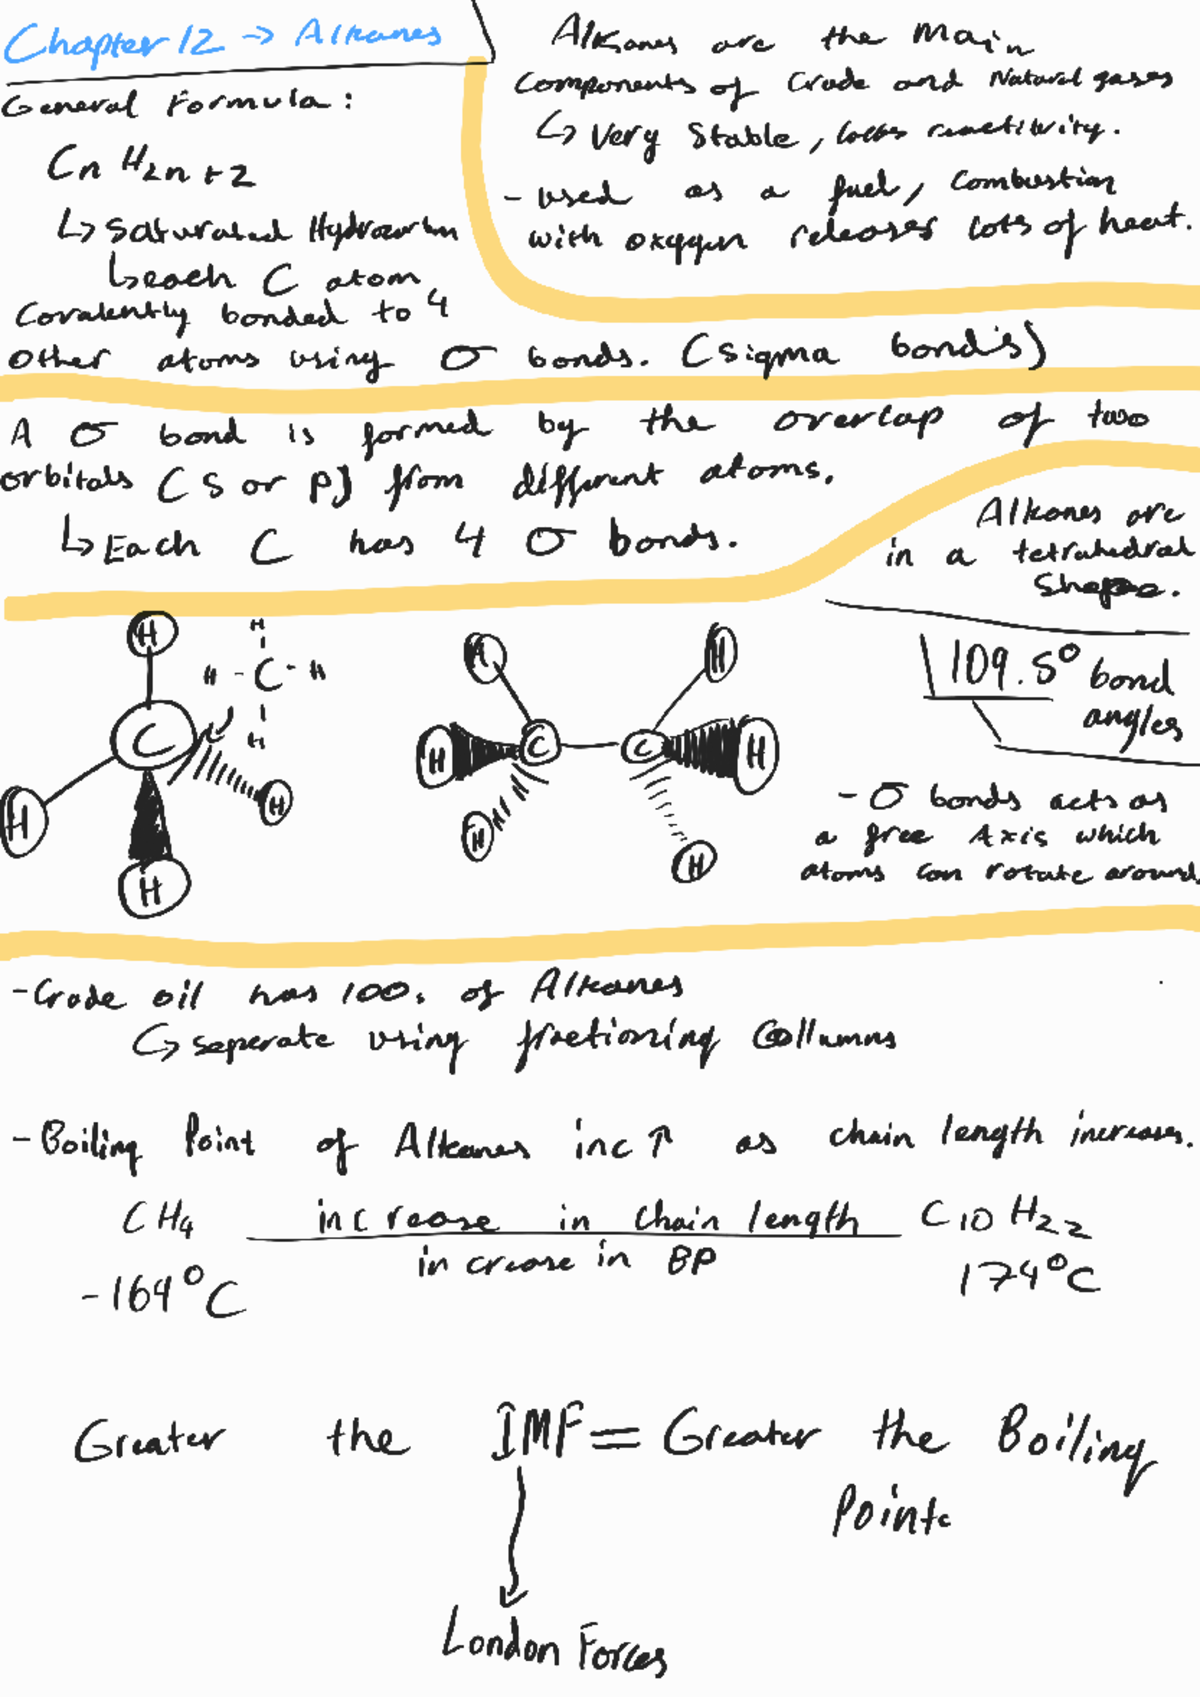 Chapter 12 → Alkanes
General Formula:
CnH2n+2
↳ Saturated Hydrocarbon
↳ each C atom
Covalently bonded to 4
Other atoms using σ bonds. (sigma bonds)
Alkanes are the Main
Components of Crude and Natural gases
↳ Very Stable, reactivity.
- used as a fuel, Combustion
with oxygen releases lots of heat.
A σ bond is formed by the overlap of two
orbitals (s or p) from different atoms.
↳ Each C has 4 σ bonds.
Alkanes are
in a tetrahedral
Shape.
109.5° bond
angles
H
H
H - C - H
H
C
H
H
H
H
H
C
C
H
H
H
H
- σ bonds acts as
a free Axis which
atoms can rotate around
- Crude oil has 100s of Alkanes
↳ seperate using fractioning Collumns
- Boiling Point of Alkanes inc ↑ as chain length increases.
CH4 increase in chain length C10H22
increase in BP
-164°C 174°C
Greater the IMF = Greater the Boiling
Point
London Forces